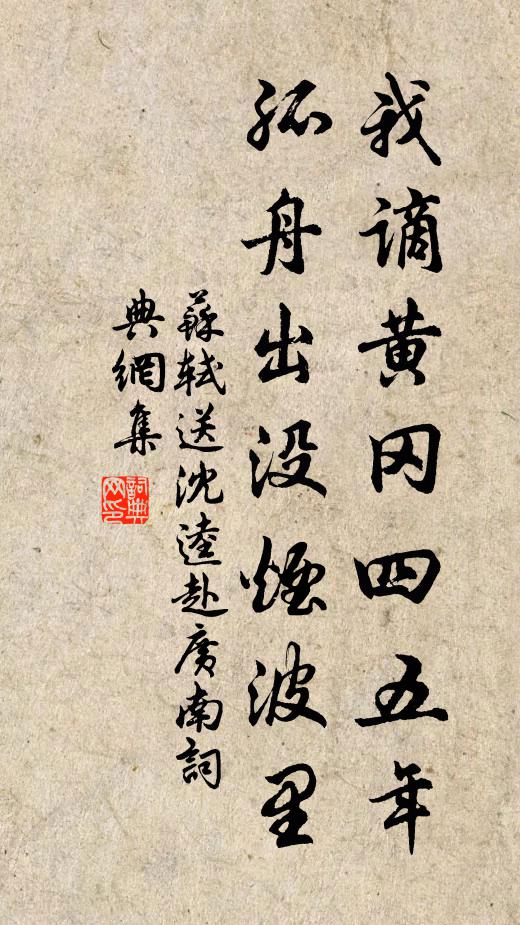 我谪黄冈四五年
孤舟出没煙波里
蘇軾送沈逵赴廣南詞
典網集
詞典
网印